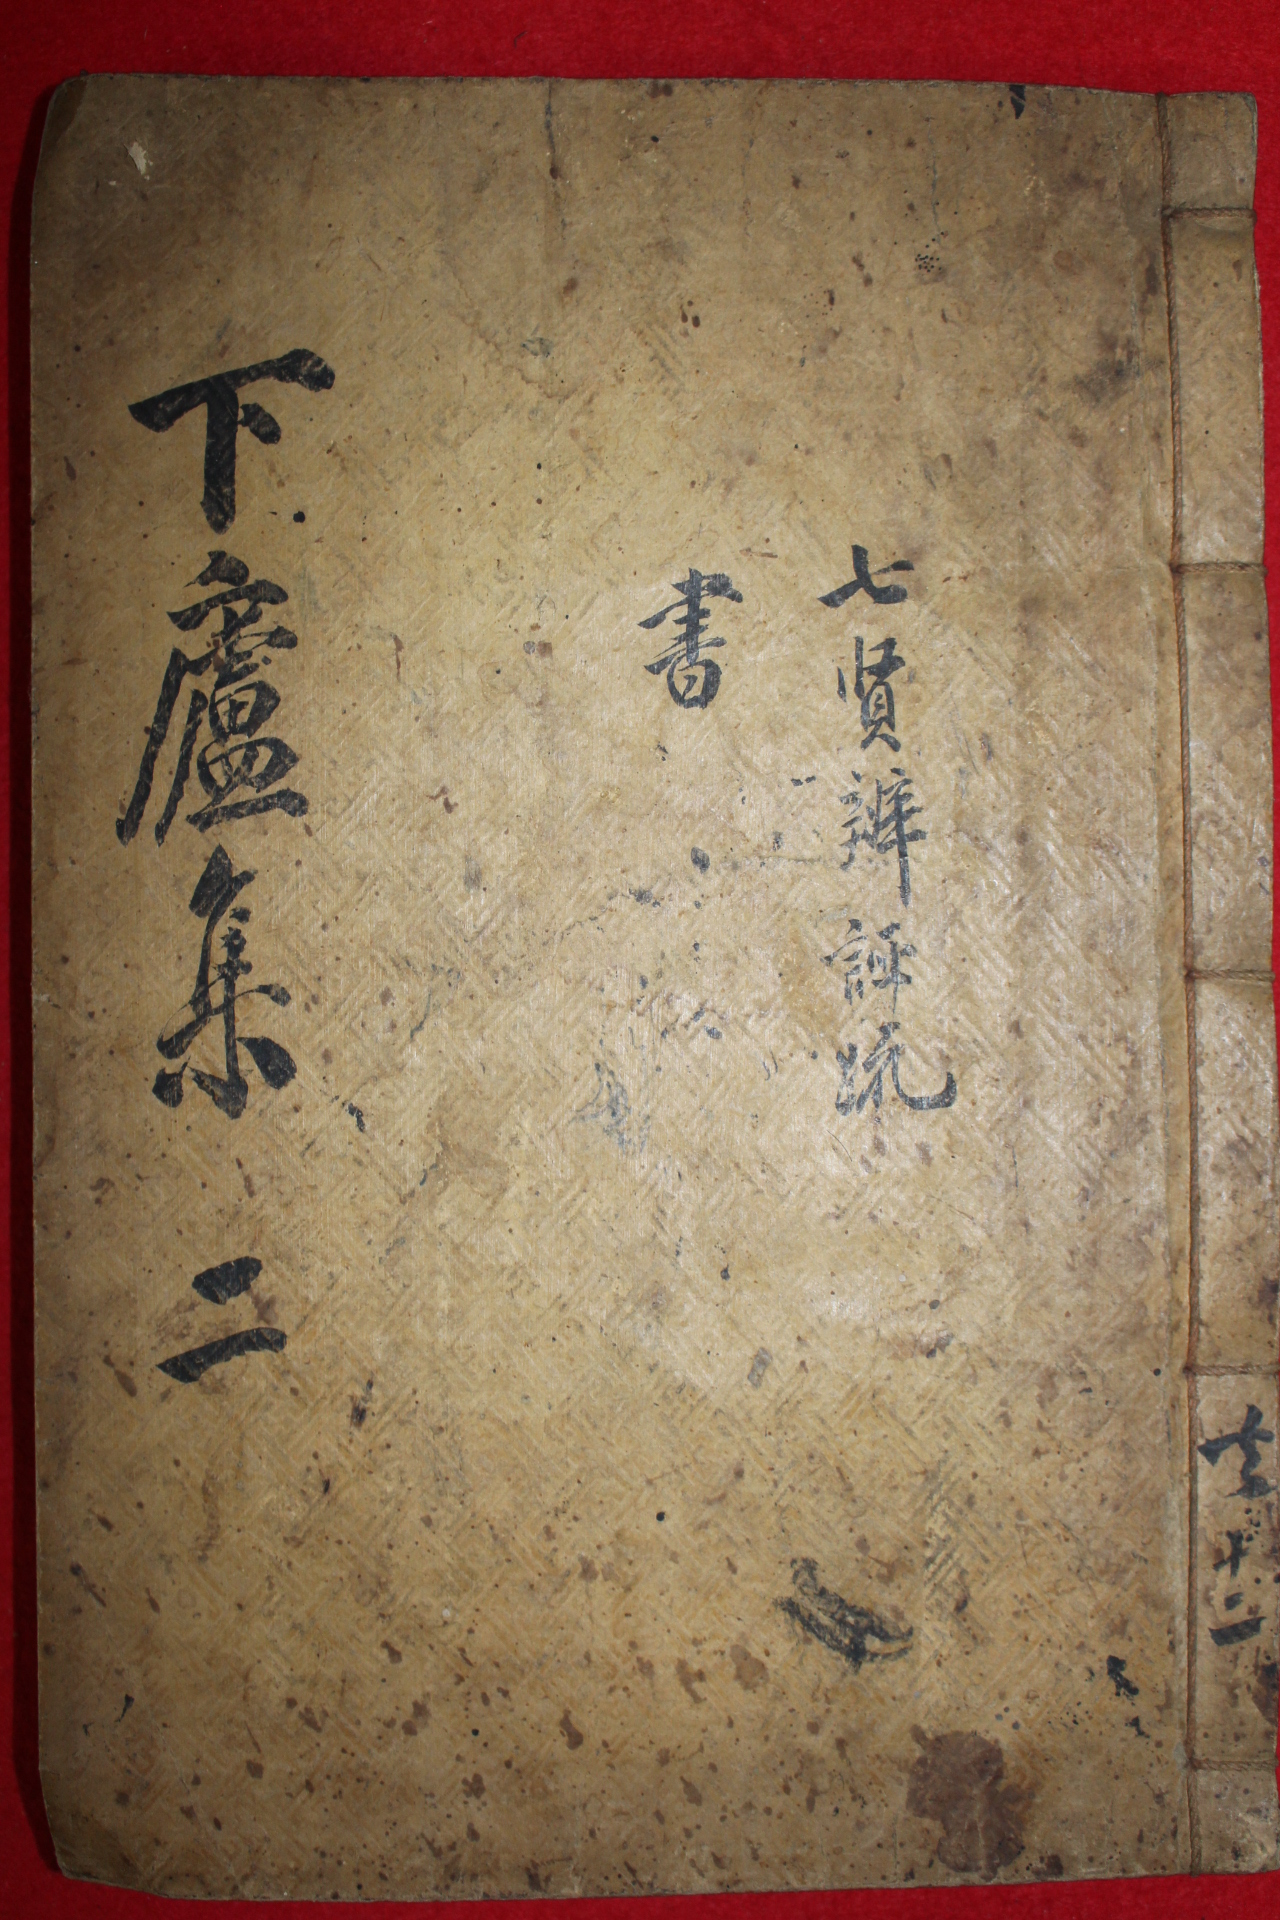 七賢辨誣疏
書
下廬集 二
共十二